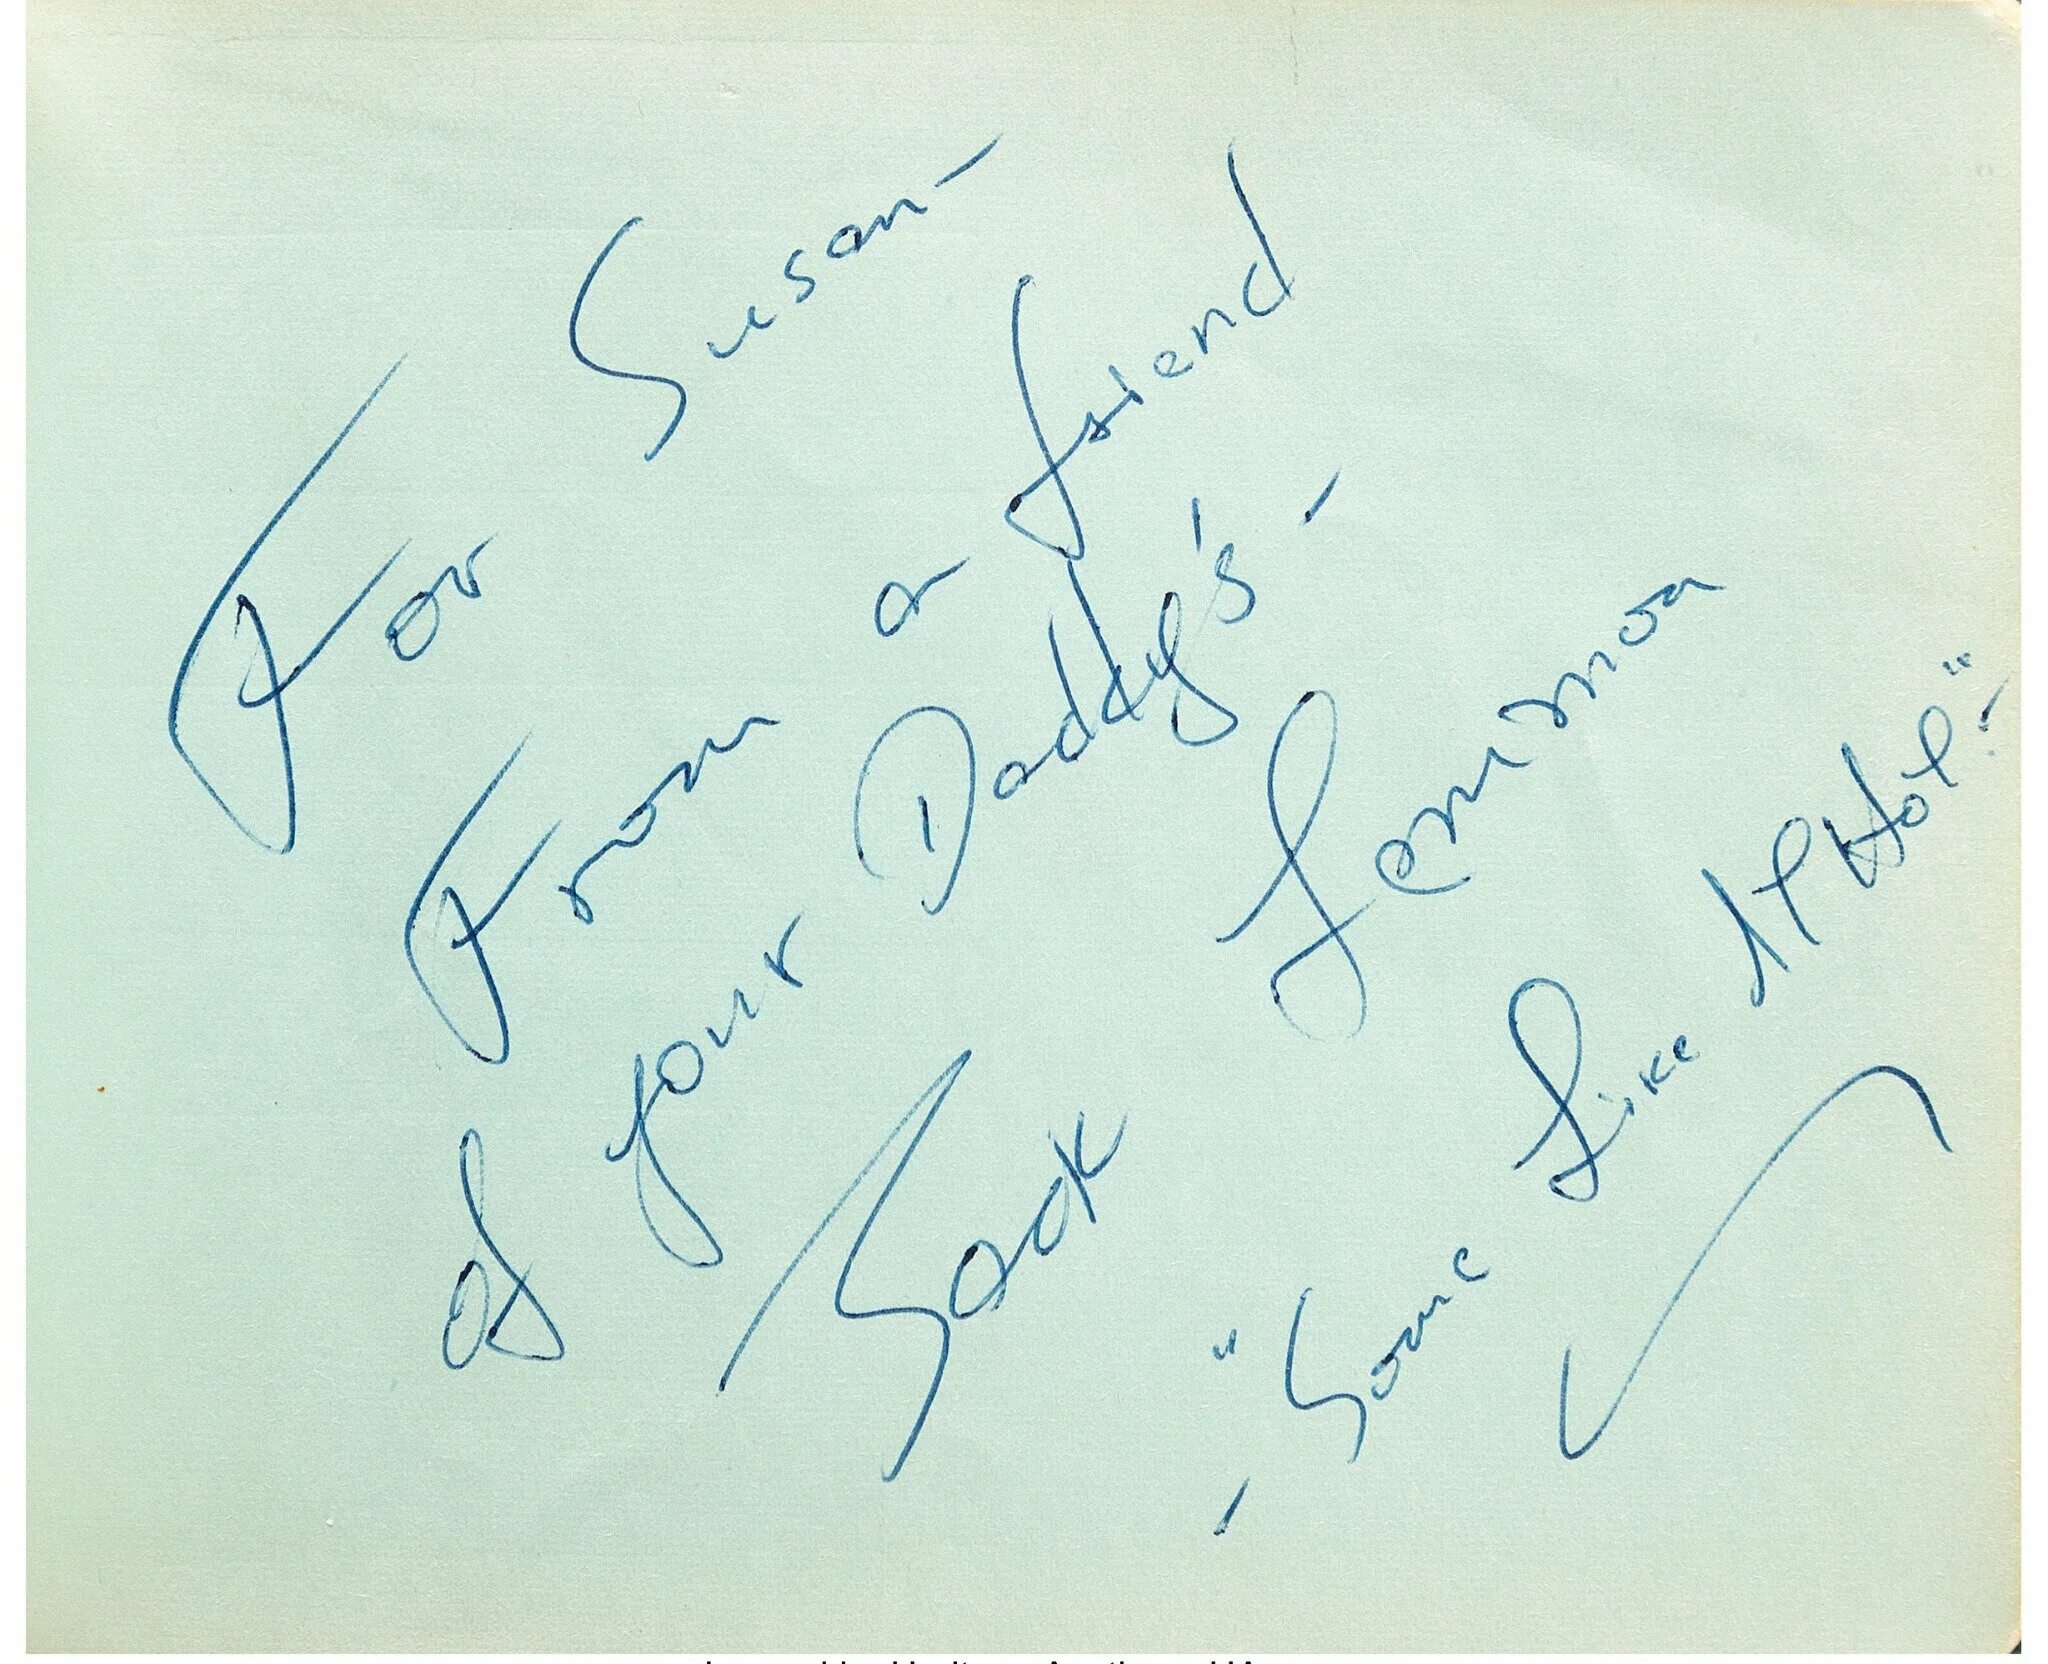 For Susan –
From a friend
of your Daddy's –
Jack Lemmon
– "Some Like It Hot" –